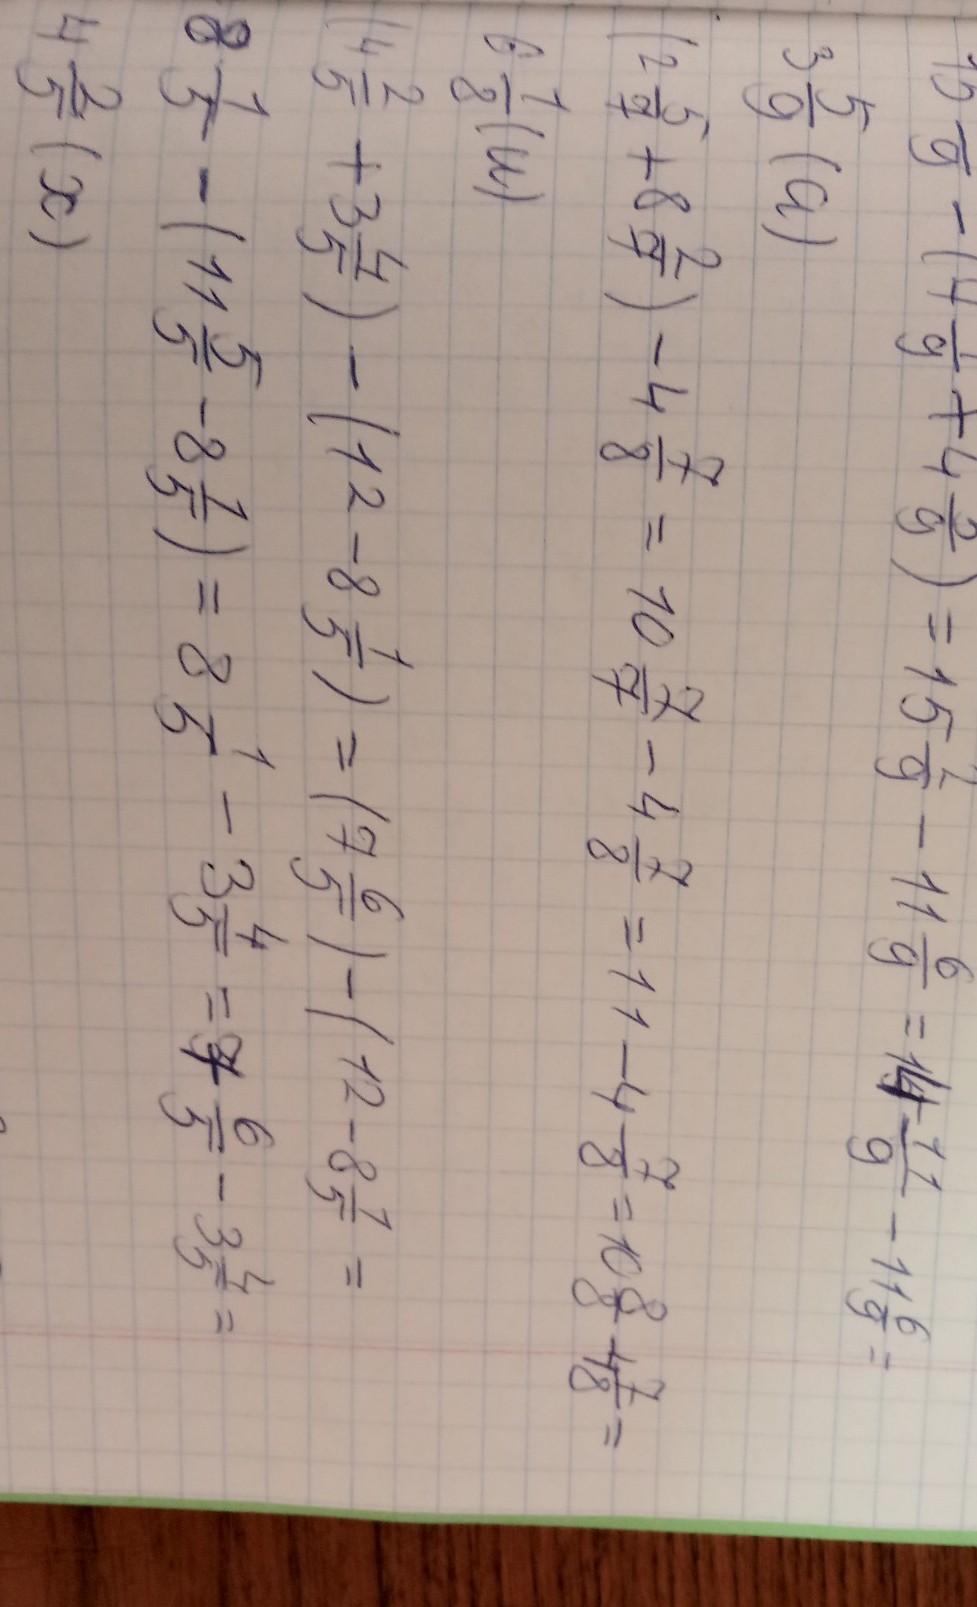 15 /9 - (4 1/9 + 4 /9) = 15 2/9 - 11 6/9 = 14 11/9 - 11 6/9 =
3 5/9 (а)
(2 5/7 + 8 2/7) - 4 7/8 = 10 7/7 - 4 7/8 = 11 - 4 7/8 = 10 8/8 - 4 7/8 =
6 1/8 (и)
(4 2/5 + 3 4/5) - (12 - 8 1/5) = (7 6/5) - (12 - 8 1/5 =
8 1/5 - (11 5/5 - 8 1/5) = 8 1/5 - 3 4/5 = 7 6/5 - 3 4/5 =
4 2/5 (х)